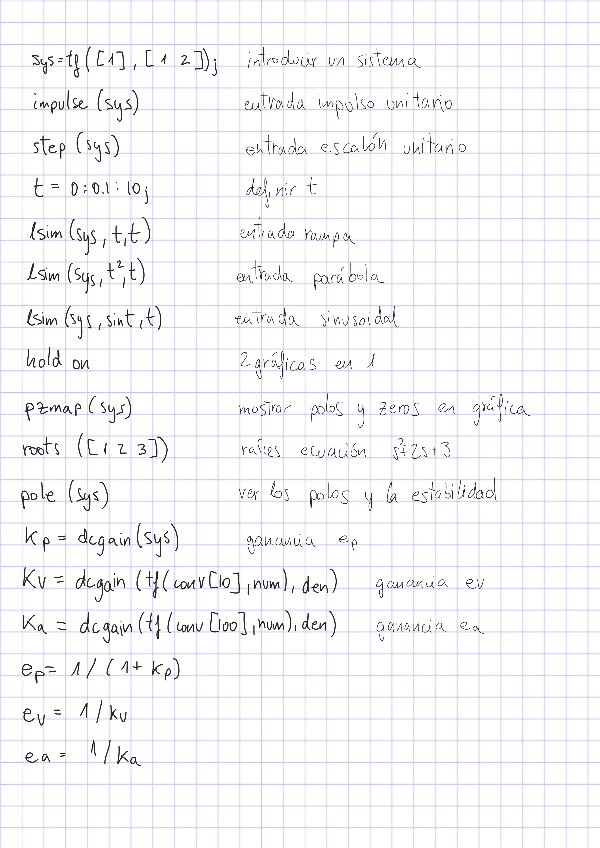 sys=tf([1], [1 2]); introducir un sistema
impulse (sys) entrada impulso unitario
step (sys) entrada escalón unitario
t = 0:0.1:10; definir t
lsim (sys, t, t) entrada rampa
lsim (sys, t², t) entrada parábola
lsim (sys, sint, t) entrada sinusoidal
hold on 2 gráficas en 1
pzmap (sys) mostrar polos y zeros en gráfica
roots ([1 2 3]) raíces ecuación s²+2s+3
pole (sys) ver los polos y la estabilidad
Kp = dcgain (sys) ganancia ep
Kv = dcgain (tf(conv[10], num), den) ganancia ev
Ka = dcgain (tf(conv[100], num), den) ganancia ea
ep = 1/(1+Kp)
ev = 1/Kv
ea = 1/Ka